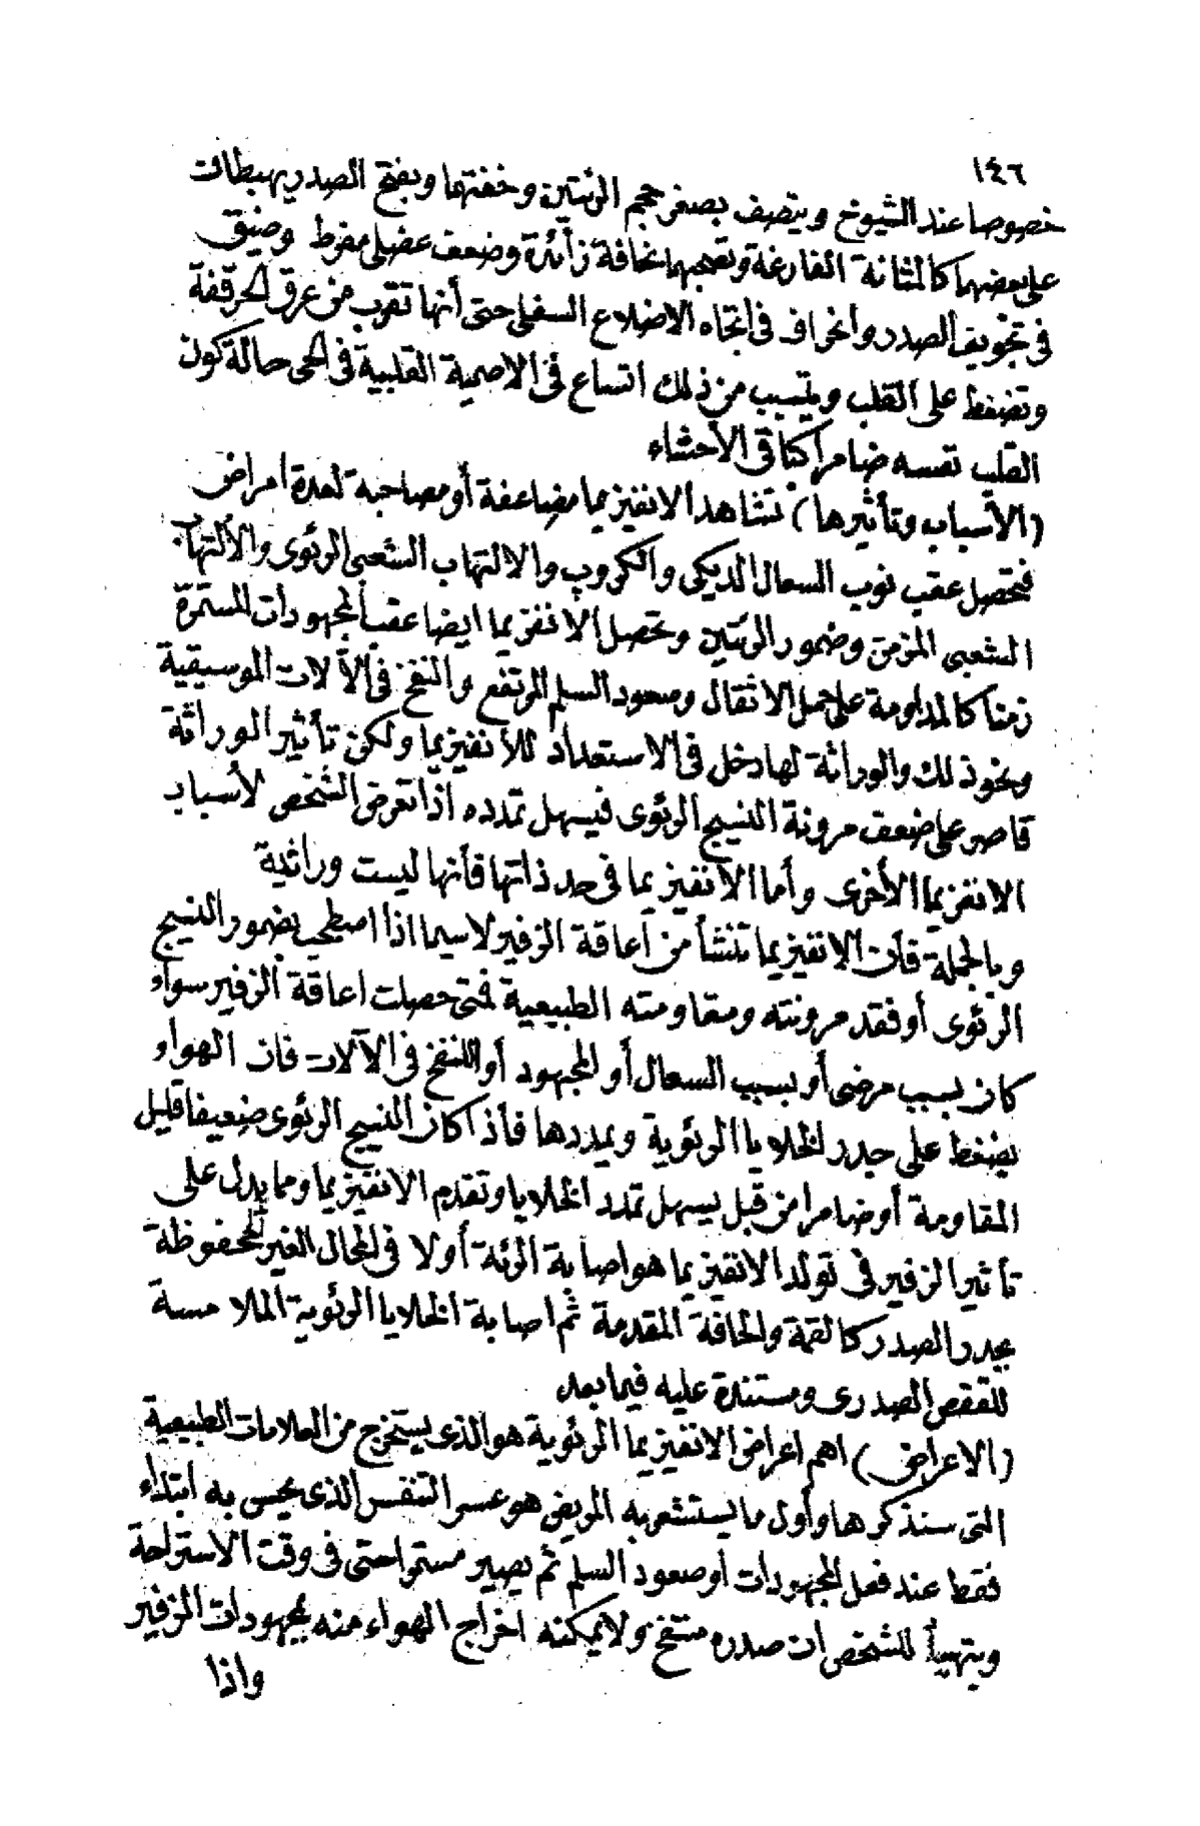 ١٤٦
خصوصا عند الشيوخ ويتصف بصغر حجم الرئتين وخفتها وبفتح الصدر يهبطان
على بعضهما كالمثانة الفارغة وتصحبها نحافة زائدة وضعف عضلى مفرط وضيق
فى تجويف الصدر وانحراف فى اتجاه الاضلاع السفلى حتى أنها تقرب من عرق الحرقفة
وتضغط على القلب ويتسبب من ذلك اتساع فى الاصمية القلبية فى الحى حالة كون
القلب نفسه ضامرا كباقى الأحشاء
(الأسباب وتأثيرها) تشاهد الانفيزيما مضاعفة أو مصاحبة لعدة امراض
فتحصل عقب نوب السعال الديكى والكروب والالتهاب الشعبى الرئوى والألتهاب
الشعبى المزمن وضمور الرئتين وتحصل الانفزيما ايضا عقب المجهودات المستمرة
زمنا كالمداومة على حمل الاثقال وصعود السلم المرتفع والنفخ فى الآلات الموسيقية
ونحو ذلك والوراثة لها دخل فى الاستعداد للأنفيزيما ولكن تأثير الوراثة
قاصر على ضعف مرونة النسيج الرئوى فيسهل تمدده اذا تعرض الشخص لأسباب
الانفزيما الأخرى وأما الأنفيزيما فى حد ذاتها فأنها ليست وراثية
وبالجملة فأن الانفيزيما تنشأ من أعاقة الزفير لاسيما اذا اصطحب بضمور النسيج
الرئوى أو فقد مرونته ومقاومته الطبيعية فمتى حصلت اعاقة الزفير سواء
كان بسبب مرضى أو بسبب السعال أو المجهود أو النفخ فى الآلات فان الهواء
يضغط على جدر الخلايا الرئوية ويمددها فأذا كان النسيج الرئوى ضعيفا قليل
المقاومة أو ضامرا من قبل يسهل تمدد الخلايا وتقدم الانفيزيما ومما يدل على
تأثير الزفير فى تولد الانفيزيما هو اصابة الرئة أولا فى المحال الغير المحفوظة
بجدر الصدر كالقمة والحافة المقدمة ثم اصابة الخلايا الرئوية الملامسة
للقفص الصدرى ومستندة عليه فيما بعد
(الاعراض) اهم اعراض الانفيزيما الرئوية هو الذى يستخرج من العلامات الطبيعية
التى سنذكرها وأول ما يستشعر به المريض هو عسر التنفس الذى يحس به ابتداء
فقط عند فعل المجهودات أو صعود السلم ثم يصير مستمرا حتى فى وقت الاستراحة
ويتهيأ للشخص ان صدره منتفخ ولا يمكنه اخراج الهواء منه بمجهودات الزفير
واذا